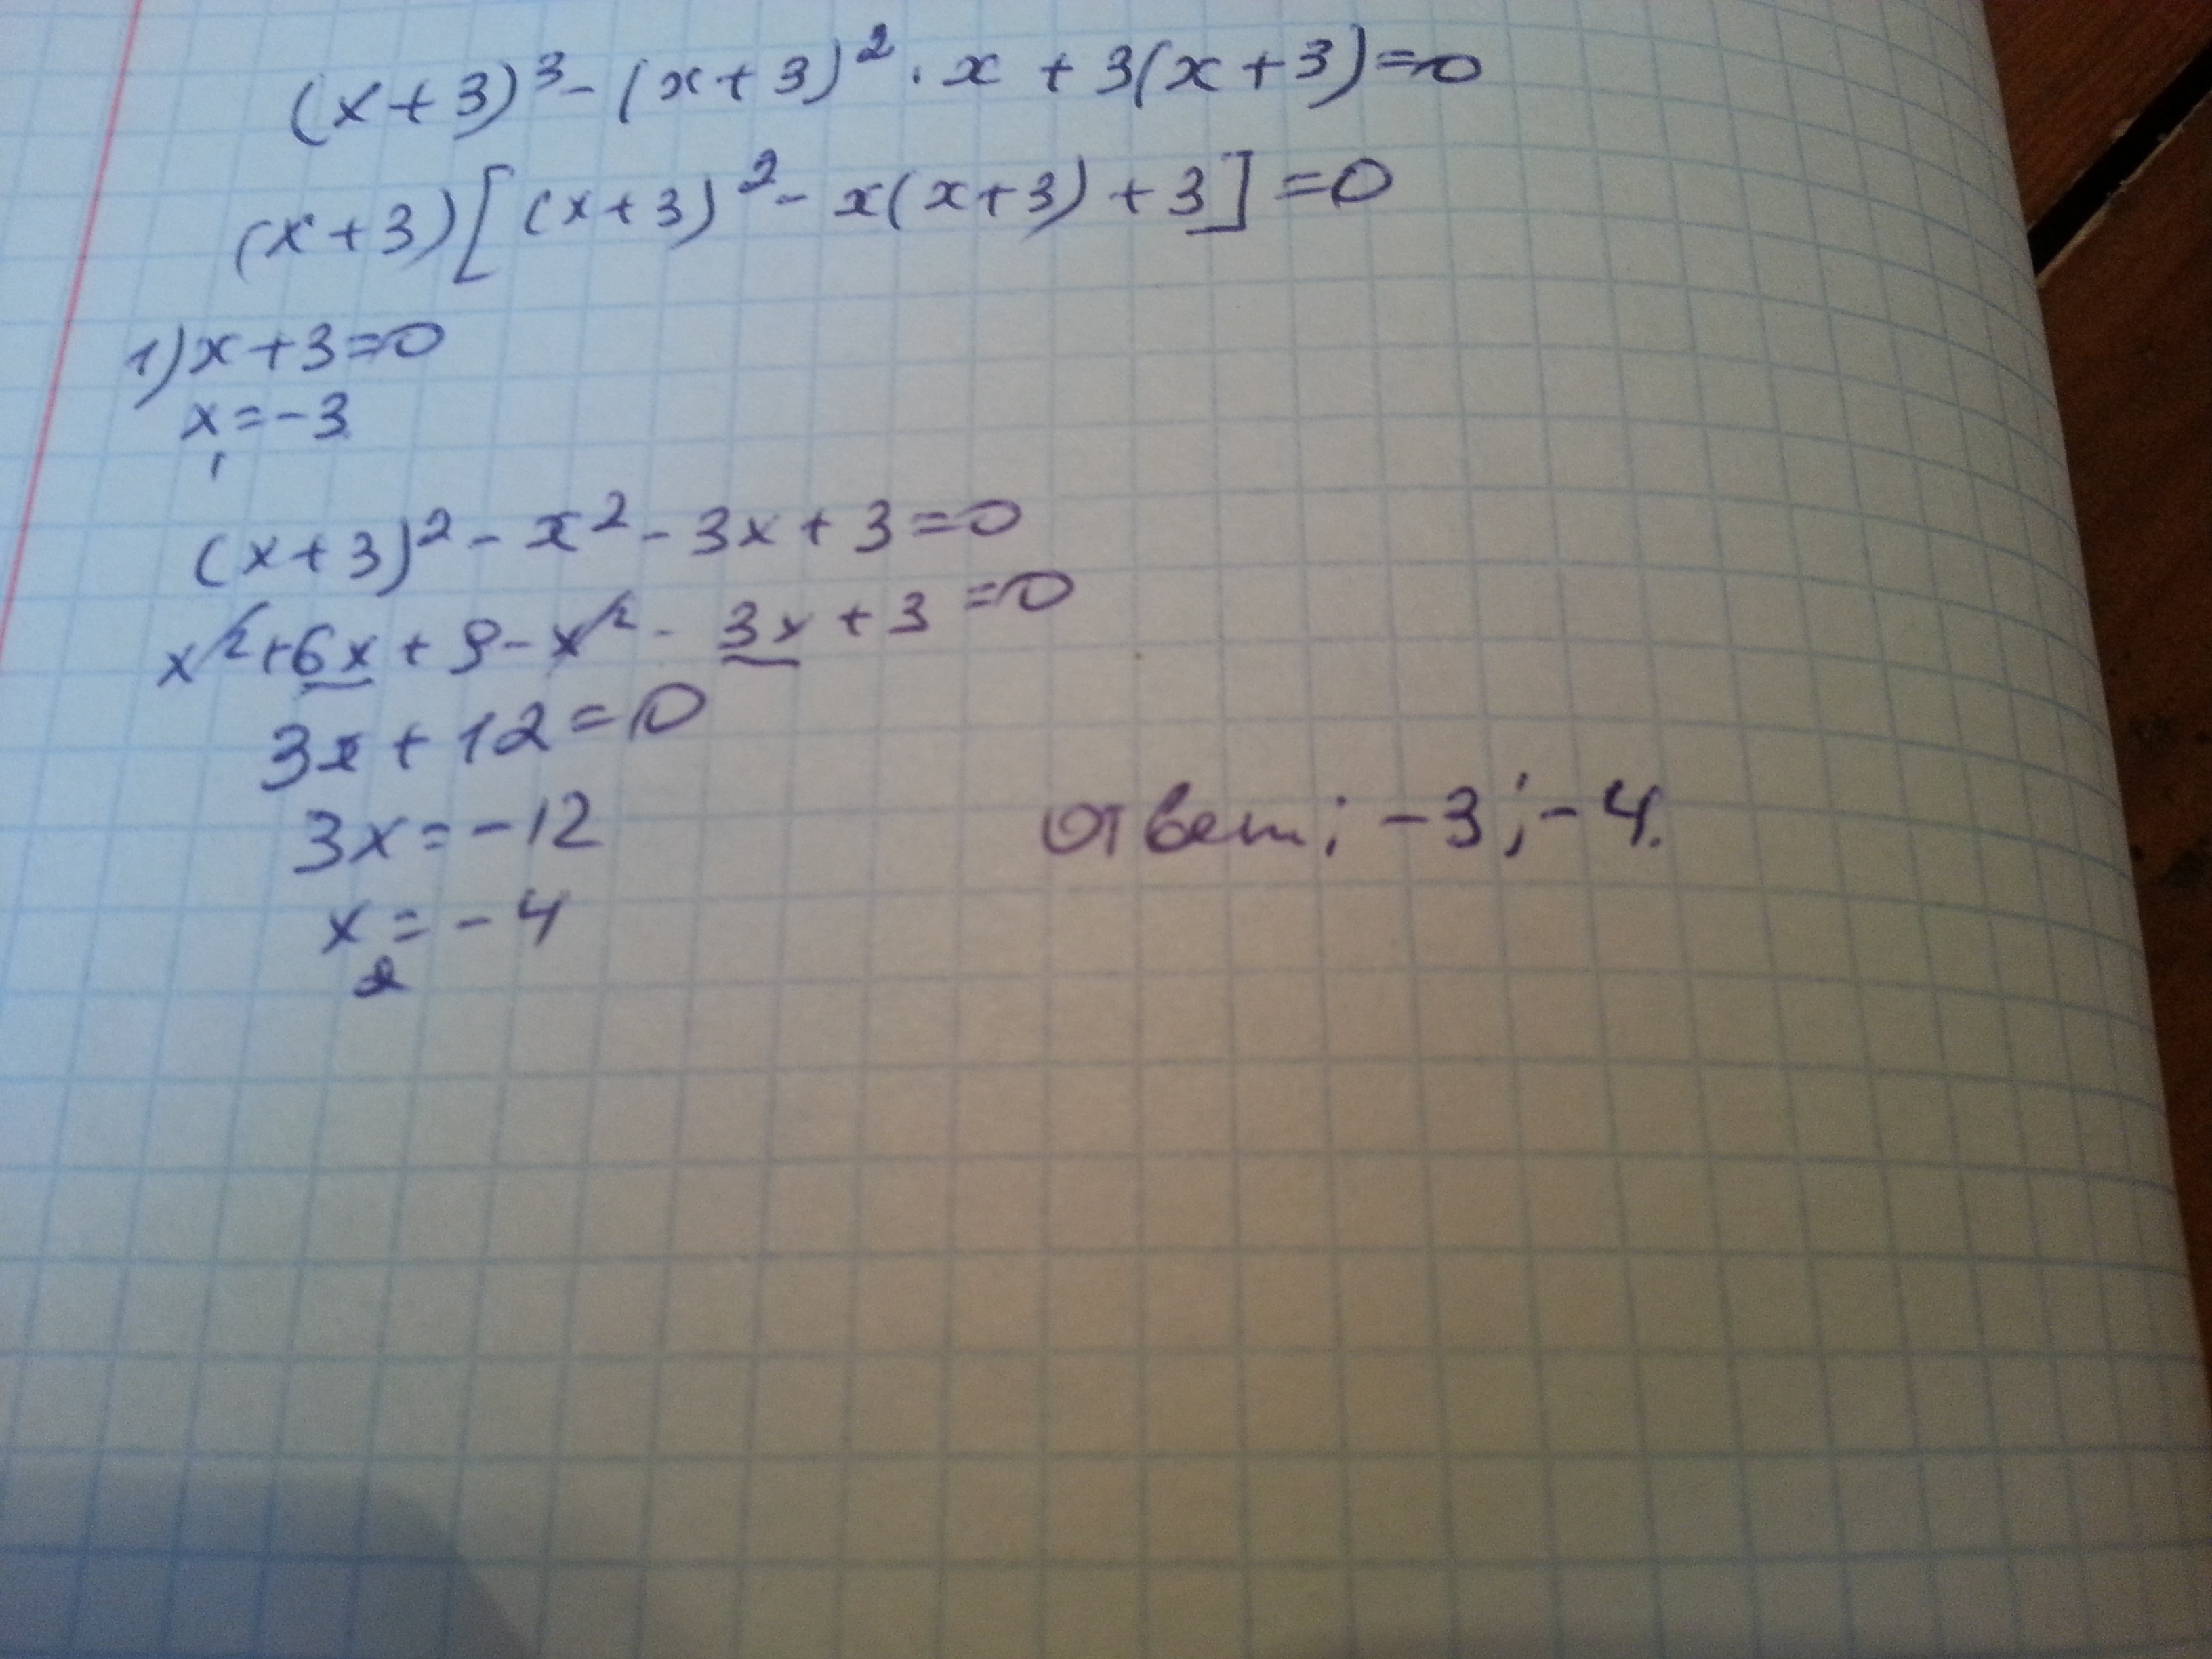 (x+3)³-(x+3)²·x+3(x+3)=0
(x+3)[(x+3)²-x(x+3)+3]=0
1)x+3=0
x₁=-3
(x+3)²-x²-3x+3=0
x²+6x+9-x²-3x+3=0
3x+12=0
3x=-12
x₂=-4
ответ; -3;-4.